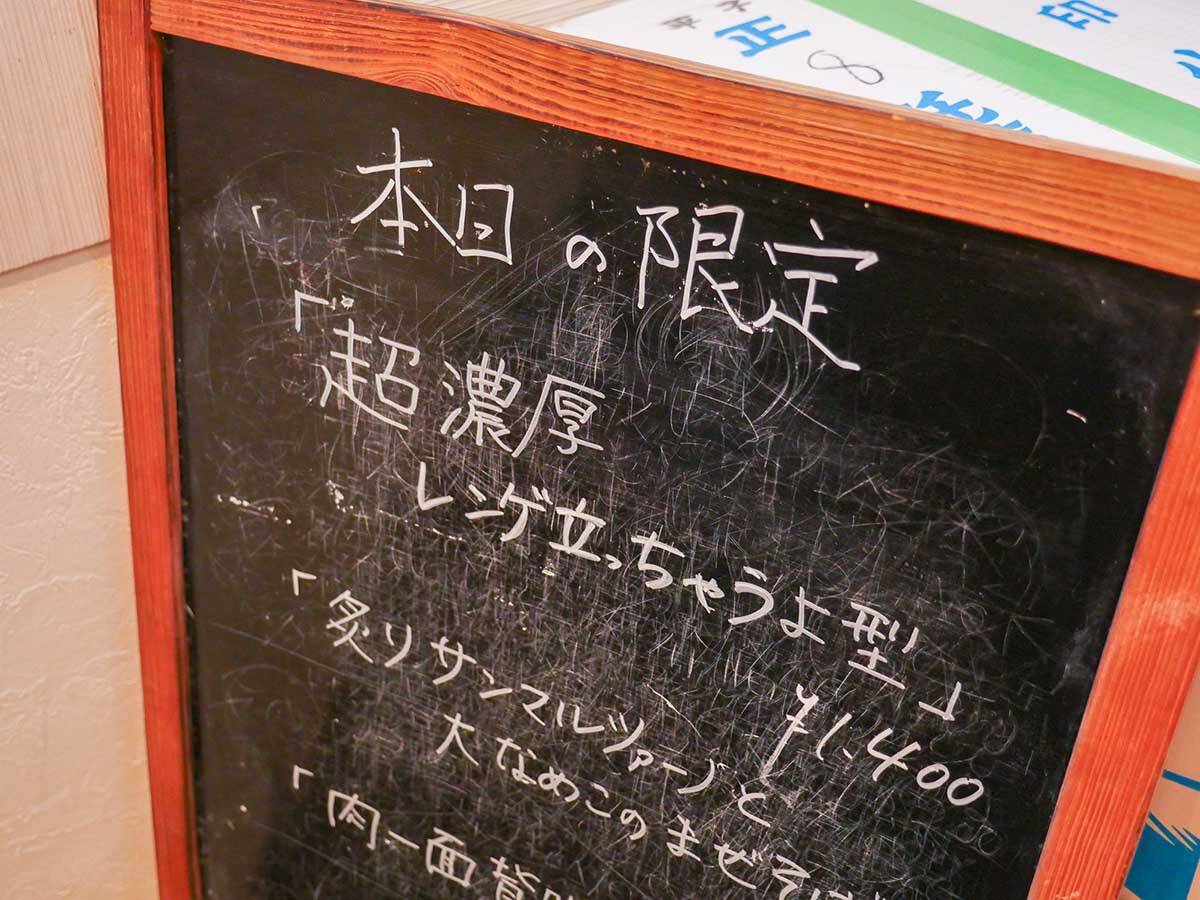 本日の限定
「超濃厚
レンゲ立っちゃうよ型」
¥1.400
「炙りサンマルツァーノと
大なめこのまぜそば
「肉一面